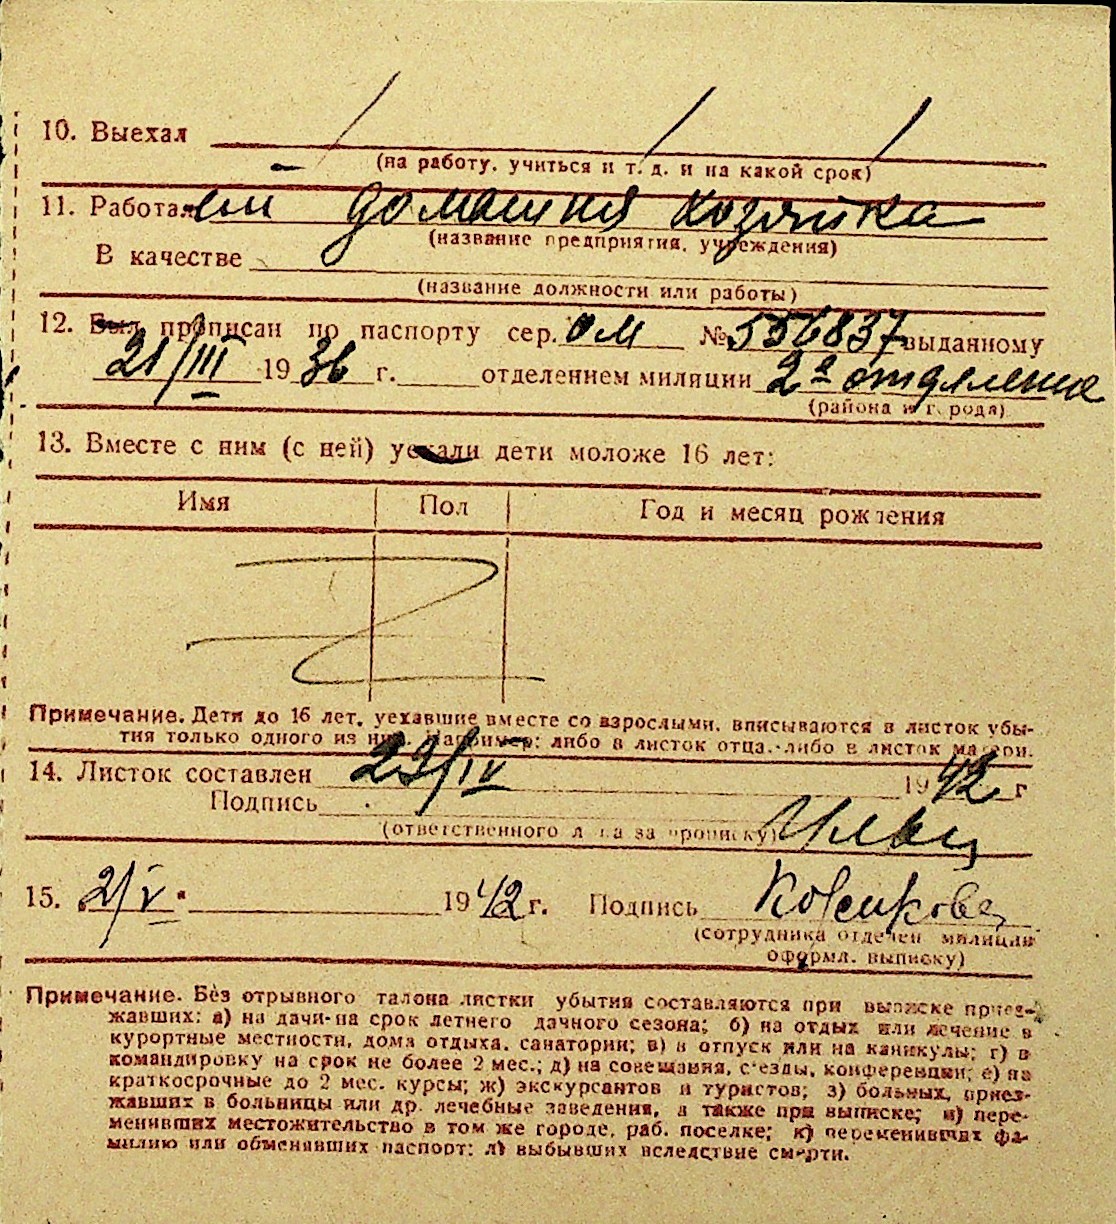 10. Выехал
(на работу, учиться и т. д. и на какой срок)
11. Работал домашняя хозяйка
(название предприятия, учреждения)
В качестве
(название должности или работы)
12. Был прописан по паспорту сер. ОМ № 556837 выданному
21/III 1936 г. отделением милиции 2е отделение
(района и города)
13. Вместе с ним (с ней) уехали дети моложе 16 лет:
Имя Пол Год и месяц рождения
Примечание. Дети до 16 лет, уехавшие вместе со взрослыми, вписываются в листок убы-
тия только одного из них. Например: либо в листок отца, либо в листок матери.
14. Листок составлен 29/IV 1942 г
Подпись
(ответственного лица за прописку)
15. 2/V 1942 г. Подпись
(сотрудника отделен милиции
оформл. выписку)
Примечание. Без отрывного талона листки убытия составляются при выписке приез-
жавших: а) на дачи-на срок летнего дачного сезона; б) на отдых или лечение в
курортные местности, дома отдыха, санатории; в) в отпуск или на каникулы; г) в
командировку на срок не более 2 мес.; д) на совещания, с'езды, конференции; е) на
краткосрочные до 2 мес. курсы; ж) экскурсантов и туристов; з) больных, приез-
жавших в больницы или др. лечебные заведения, а также при выписке; и) пере-
менивших местожительство в том же городе, раб. поселке; к) переменивших фа-
милию или обменивших паспорт; л) выбывших вследствие смерти.